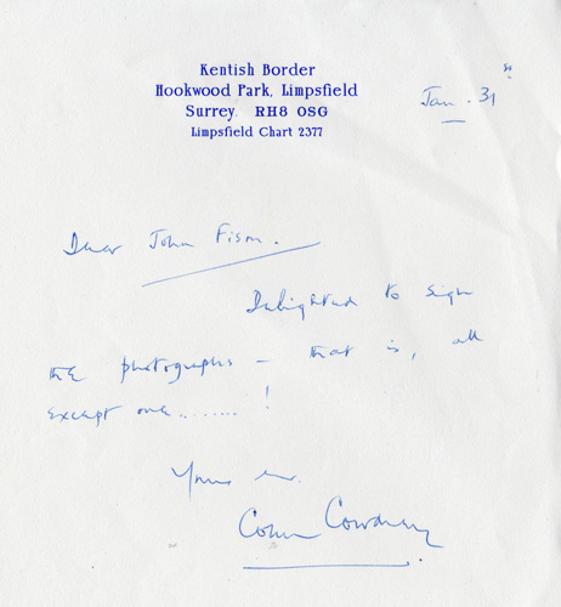 Kentish Border
Hookwood Park, Limpsfield
Surrey. RH8 0SG
Limpsfield Chart 2377
Jan. 31st
Dear John
Delighted to sign
the photographs – that is, all
except one ........ !
Yours
Colin Cowdrey